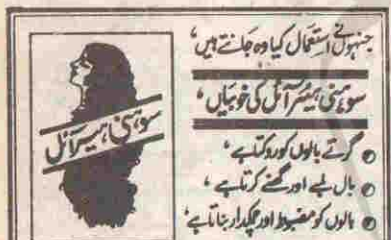 جنہوں نے استعمال کیا وہ جانتے ہیں،
سوہنی ہیئر آئل کی خوبیاں،
گرتے بالوں کو روکتا ہے،
بال لمبے اور گھنے کرتا ہے،
بالوں کو مضبوط اور چمکدار بناتا ہے،
سوہنی ہیئر آئل